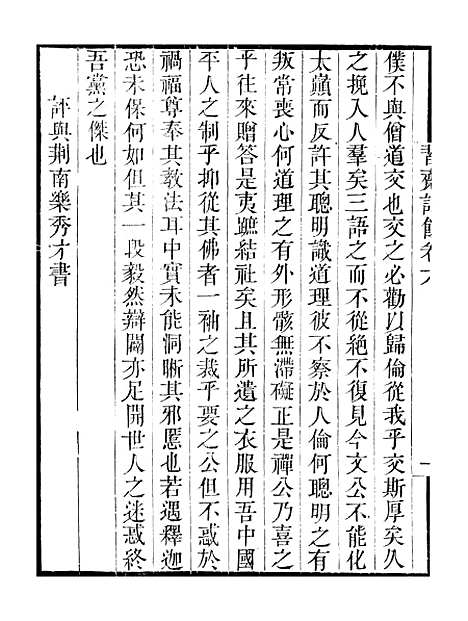 習齋記餘卷六
一
僕不與僧道交也交之必勸以歸倫從我乎交斯厚矣久
之挽入人羣矣三語之而不從絕不復見今文公不能化
太顚而反許其聰明識道理彼不察於人倫何聰明之有
叛常喪心何道理之有外形骸無滯礙正是禪公乃喜之
乎往來贈答是夷蹠結社矣且其所遺之衣服用吾中國
平人之制乎抑從其佛者一袖之裁乎要之公但不惑於
禍福尊奉其教法耳中實未能洞晰其邪慝也若遇釋迦
恐未保何如但其一段毅然辯闢亦足開世人之迷惑終
吾黨之傑也
評與荆南樂秀才書